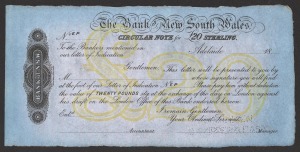 The Bank of New South Wales
No 120
CIRCULAR NOTE for £20 STERLING.
To the Bankers mentioned on
our letter of Indication
Adelaide 18
Gentlemen, This letter will be presented to you by
whose signature you will find
at the foot of our Letter of Indication No Please pay him without deduction
the value of TWENTY POUNDS stg at the exchange of the day on London against
his draft on the London Office of this Bank endorsed hereon.
I remain Gentlemen,
Your Obedient Servant
Accountant
Manager
BANK